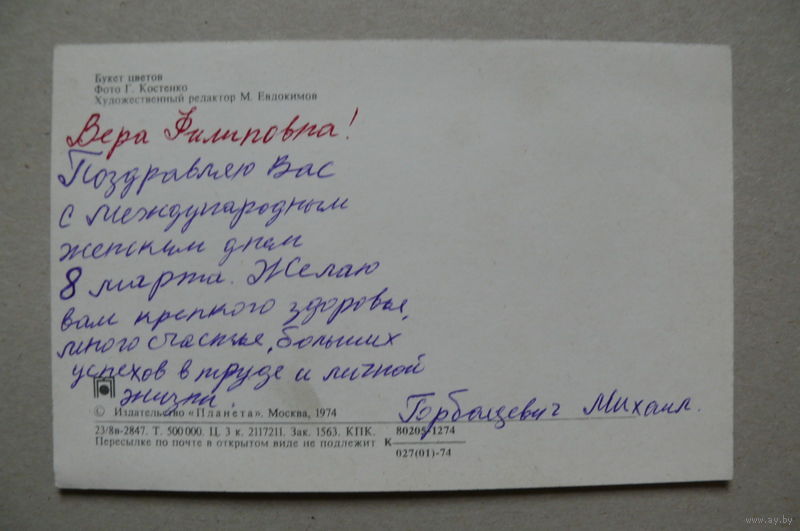 Букет цветов
Фото Г. Костенко
Художественный редактор М. Евдокимов
Вера Филиповна!
Поздравляю Вас
с международным
женским днем
8 марта. Желаю
вам крепкого здоровья,
много счастья, больших
успехов в труде и личной
жизни.
Горбацевич Михаил.
© Издательство «Планета». Москва, 1974
23/8в-2847. Т. 500 000. Ц. 3 к. 2117211. Зак. 1563. КПК.
Пересылке по почте в открытом виде не подлежит К 80205-1274
027(01)-74
www.ay.by